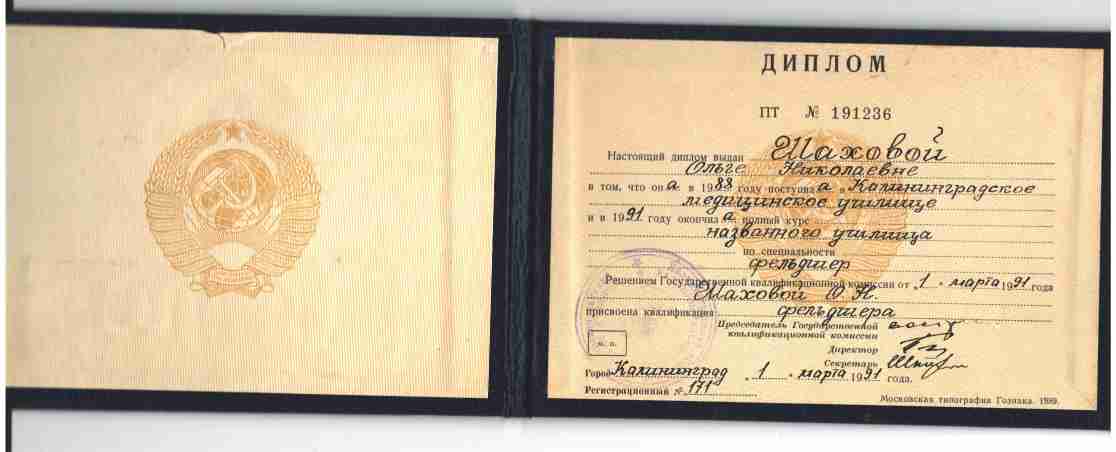 ДИПЛОМ
ПТ № 191236
Настоящий диплом выдан Шаховой
Ольге Николаевне
в том, что она в 1988 году поступила в Калининградское
медицинское училище
и в 1991 году окончила полный курс
названного училища
по специальности
фельдшер
Решением Государственной квалификационной комиссии от 1 марта 1991 года
Шаховой О. Н.
присвоена квалификация фельдшера
Председатель Государственной
квалификационной комиссии
Директор
Секретарь
М. П.
Город Калининград 1 марта 1991 года.
Регистрационный № 171
Московская типография Гознака. 1989.